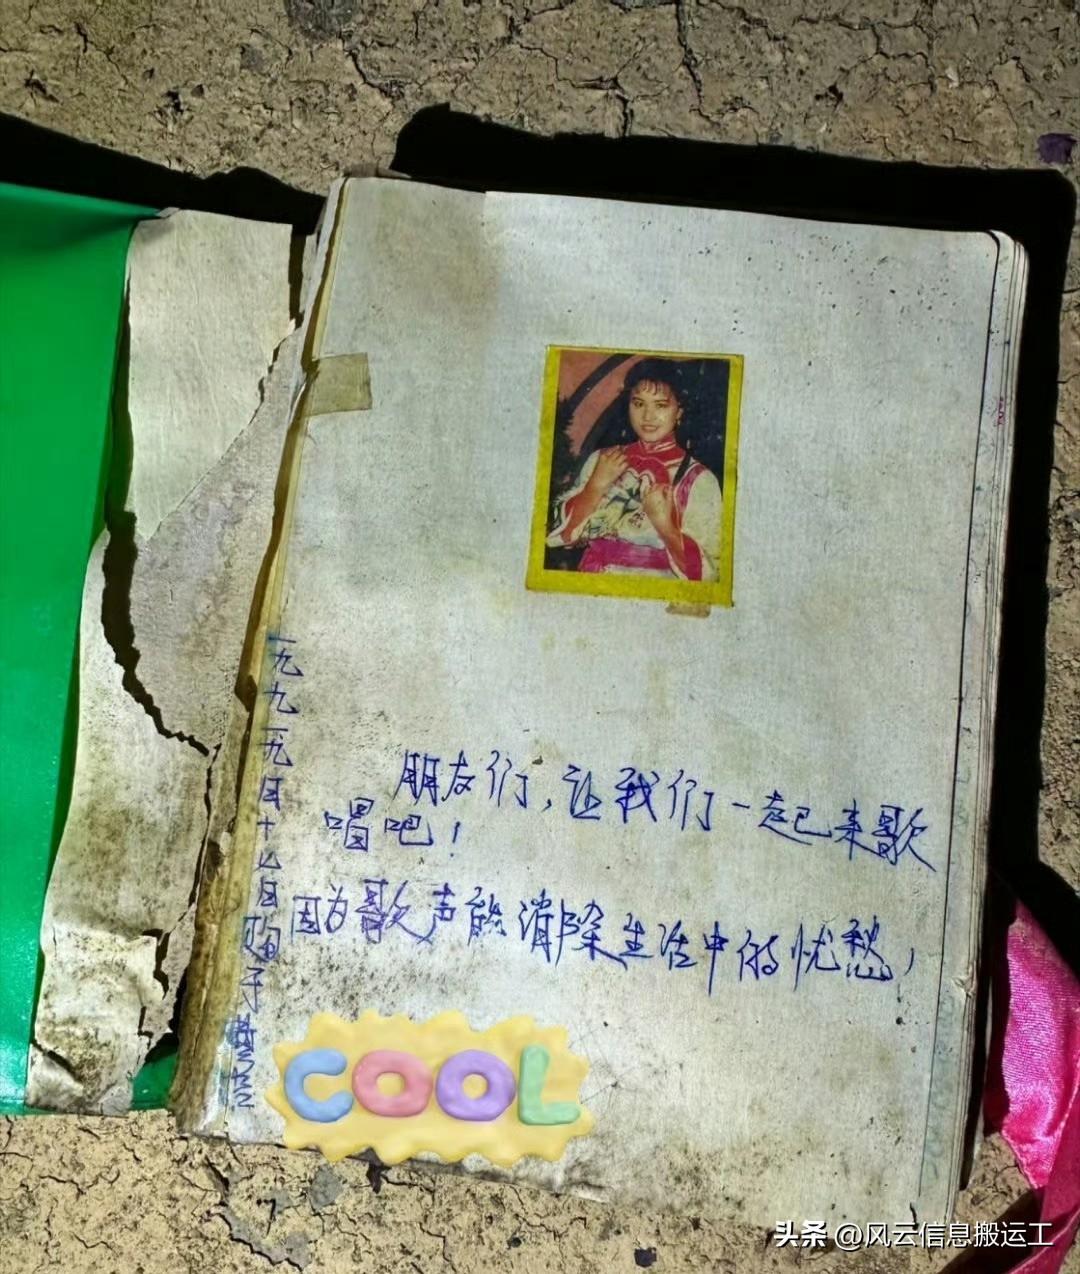 朋友们,让我们一起来歌
唱吧!
因为歌声能消除生活中的忧愁,
一九九一九月十日购于
COOL
头条 @风云信息搬运工